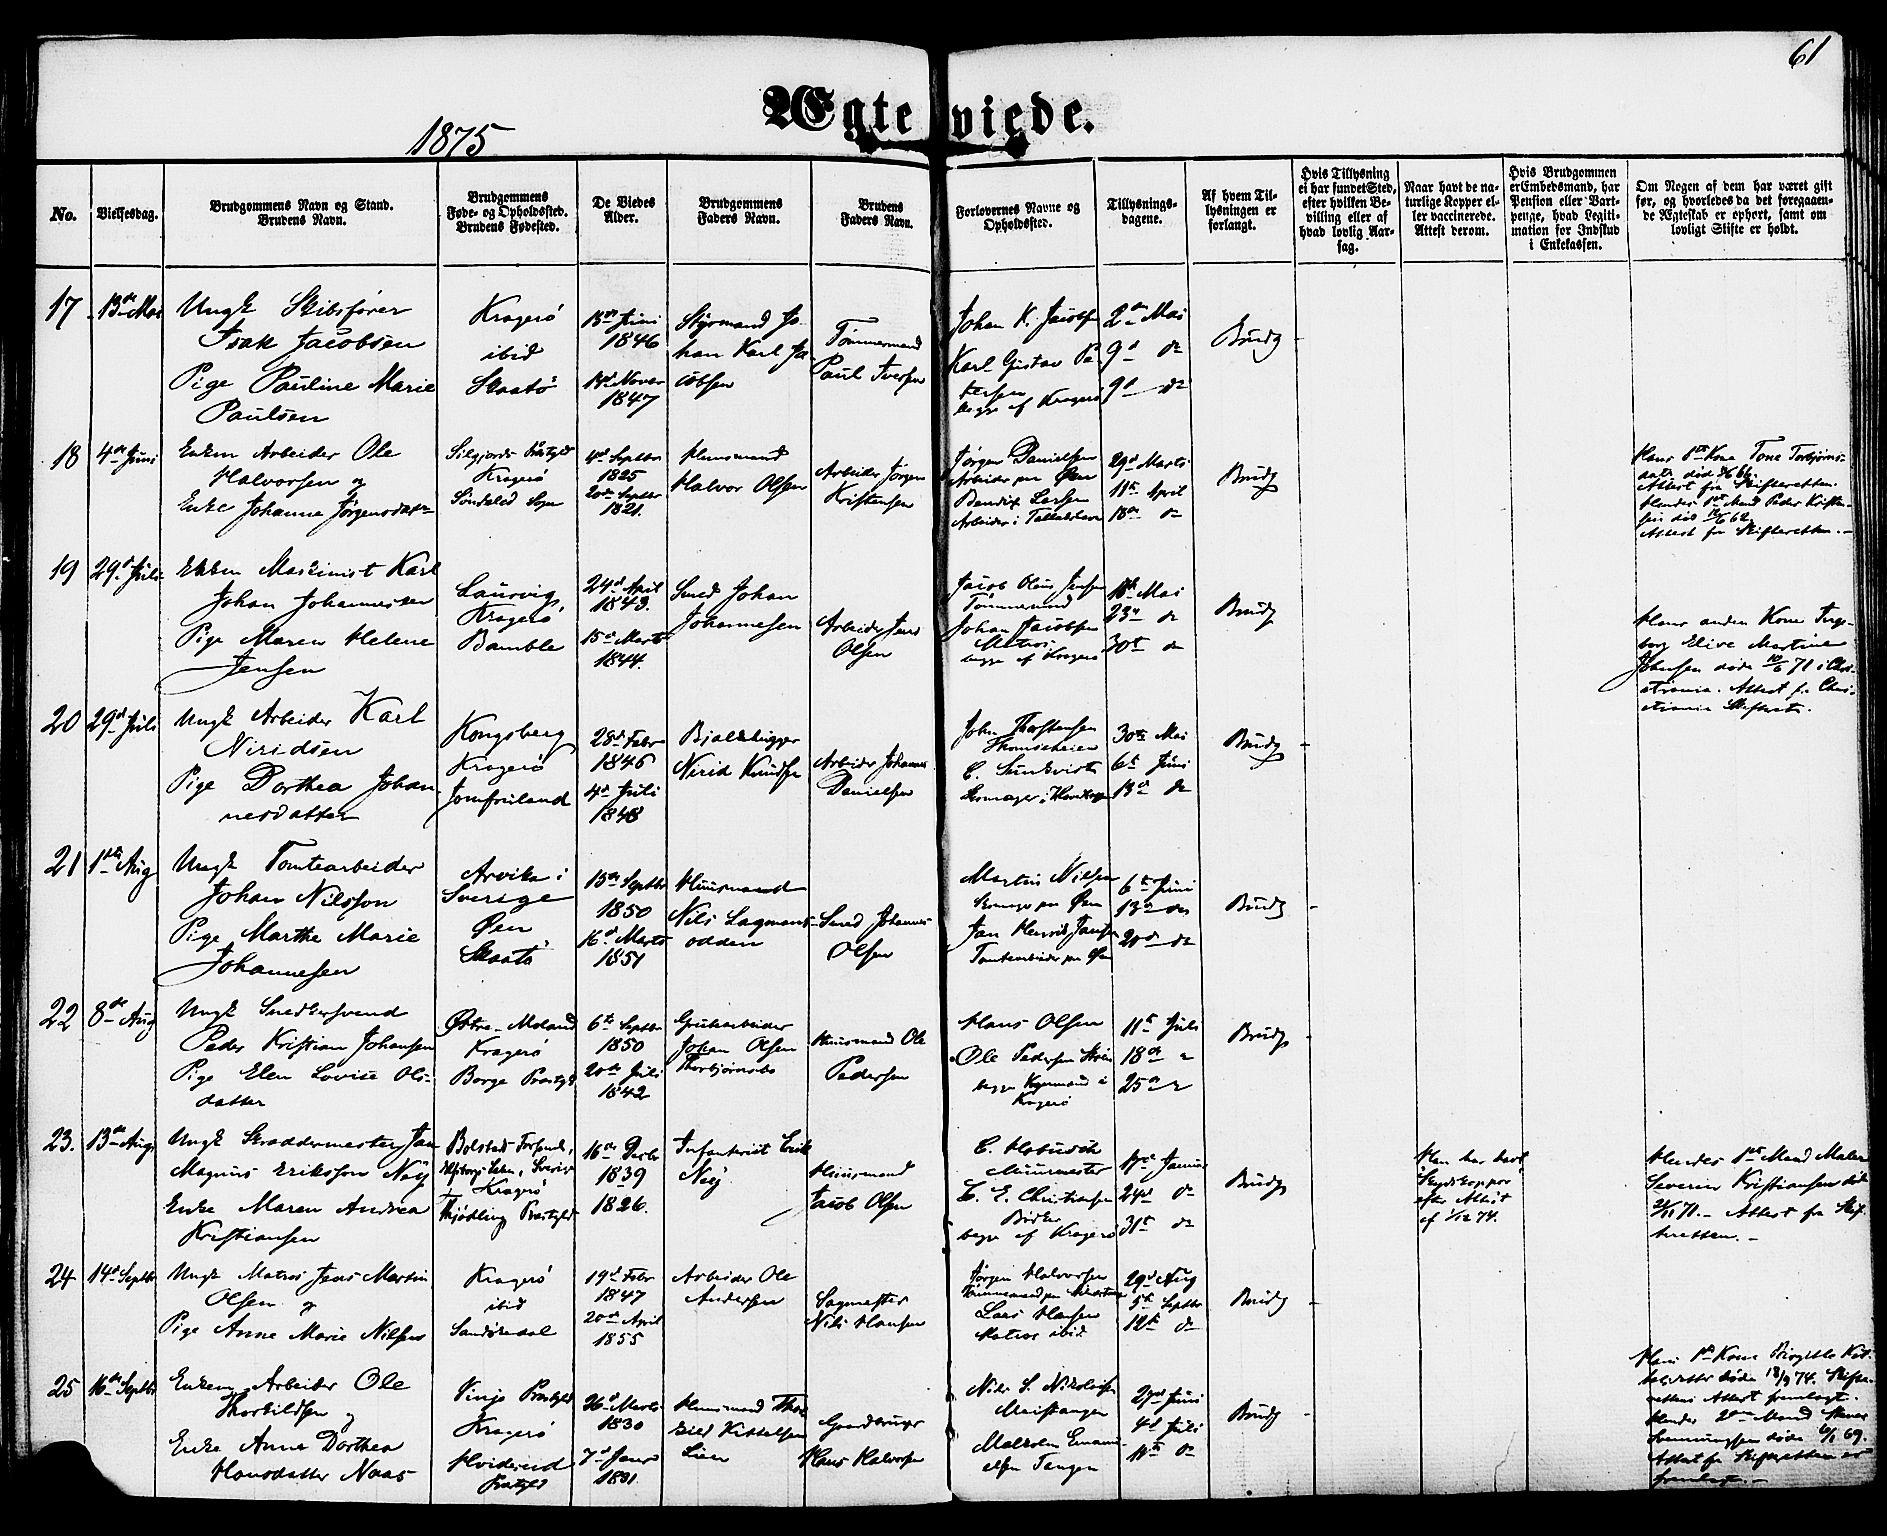 61
Ægteviede.
1875
No.
Vielsesdag.
Brudgommens Navn og Stand.
Brudens Navn.
Brudgommens
Føde- og Opholdssted.
Brudens Fødested.
De Viedes
Alder.
Brudgommens
Faders Navn.
Brudens
Faders Navn.
Forlovernes Navne og
Opholdssted.
Tillysnings-
dagene.
Af hvem Til-
lysningen er
forlangt.
Hvis Tillysning
ei har fundet Sted,
efter hvilken Be-
villing eller af
hvad lovlig Aar-
sag.
Naar havt de na-
turlige Kopper el-
ler vaccinerede.
Attest derom.
Hvis Brudgommen
er Embedsmand, har
Pension eller Vart-
penge, hvad Legiti-
mation for Indskud
i Enkekassen.
Om Nogen af dem har været gift
før, og hvorledes da det foregaaen-
de Ægteskab er ophørt, samt om
lovligt Skifte er holdt.
17
13de Mai
Ungk Skibsfører
Isak Jacobsen
Pige Pauline Marie
Paulsen
Kragerø
ibid
Skaatø
Juni
1846
1847
Styrmand Jo-
han Karl Ja-
cobsen
Tømmermand
Paul Iversen
Johan K. Jacobsen
Karl Gustav Pe-
tersen
begge af Kragerø
2den Mai
9d do
9d do
Brudg
18
4de Juni
Enkem Arbeider Ole
Halvorsen og
Enke Johanne Jørgensdatter
Silgjords Præstgld
Kragerø
Søndeled Sogn
4d Septbr
1825
20de Septbr
1821.
Huusmand
Halvor Olsen
Arbeider Jørgen
Kristensen
Jørgen Danielsen
Arbeider paa Øen
Bendix Larsen
Arbeider i
29d Marts
11te April
18de do
Brudg
Hans 1ste Kone Tone Torbjørns-
datter død
Attest fra Skifteretten.
Hendes 1ste Mand Peder Kristen-
sen død 62
Attest fra Skifteretten. -
19
29d Juli
Maskinist Karl
Johan Johannessen
Pige Maren Helene
Jensen
Laurvig
Kragerø
Bamble
24d April
1843.
15de Marts
1844.
Smed Johan
Johannesen
Arbeider Jens
Olsen
Jacob Olaus Jensen
Tømmermand
Johan Jacobsen
Matros
begge af Kragerø
Mai
23de do
30te do
Brudg
Hans anden Kone Inge-
borg Elive Martine
Johansen døde 10/6 71 i Chri-
stiania. Attest fr Chri-
stiania Skifteret.
20
29d Juli
Ungk Arbeider Karl
Niridsen
Pige Dorthea Johan-
nesdatter
Kongsberg
Kragerø
Jomfruland
28d Febr
1846
4d Juli
1848
Bjælkehugger
Nirid Knudsen
Arbeider Johannes
Danielsen
John Thorstensen
C. Sundkvist
30te Mai
6te Juni
13de do
Brudg
21
1ste Aug
Ungk Tomtearbeider
Johan Nilsson
Pige Marthe Marie
Johannesen
Arvika i
Sverige
Øen
Skaatø
15de Septbr
1850
16d Marts
1851
Huusmand
Nils Lagmans-
odden
Smed Johannes
Olsen
Martin Nilsen
paa Øen
Jan Henrik Jansen
Tomtearbeider paa Øen
6te Juni
13de do
20de do
Brudg
22
8de Aug
Ungk Snedkersvend
Peder Kristian Johansen
Pige Elen Lovise Ols-
datter
Østre-Moland
Kragerø
Borge Præstgld
6te Septbr
1850
20de Juli
1842
Grubearbeider
Johan Olsen
Thorbjørnsbo
Huusmand Ole
Pedersen
Hans Olsen
Ole Pedersen
begge i
Kragerø
11te Juli
18de "
25de "
Brudg
23.
13de Aug
Ungk Skræddermester Jan
Magnus Eriksson Nøj
Enke Maren Andrea
Kristiansen
Bolstad
Elfsborgs Lehn, Sverige
Kragerø
Fjødling Præstgld
16de Decbr
1839
1826.
Infanterist Erik
Nøj
Huusmand
Jacob Olsen
Muurmester
C. E. Christiansen
Bødker
begge af Kragerø
17de Januar
24de do
31te do
Brudg
Han har havt
Skydskopper
efter Attest
af 1/12 74.
Hendes 1ste Mand Maler
Severin Kristiansen død
71. - Attest fra Skif-
teretten. -
24
14d Septbr
Ungk Matros Jens Martin
Olsen og
Pige Anne Marie Nilsen
Kragerø
ibid
Sandøkedal
19d Febr
1847
20de April
1855
Arbeider Ole
Andersen
Sagmester
Nils Hansen
Jørgen Halvorsen
Tømmermand
Lars Hansen
Matros ibid
29d Aug
5te Septbr
12te do
Brudg
25
16de Septbr
Enkem Arbeider Ole
Thorkildsen og
Enke Anne Dorthea
Hansdatter Naas
Vinje Præstgld
Kragerø
Hviderud
Præstgld
26d Marts
1830
7d Janr
Huusmand Thor-
kild Kittelsen
Lien
Gaardbruger
Hans Halvorsen
Nils S. Nikolaisen
Malkolm Emanu-
elsen Tangen
27de Juni
4d Juli
11te do
Brudg
Hans 1ste Kone Birgitte Kit-
telsdatter døde 18/9 74. Skifte-
rettens Attest fremlagt.
Hendes 2den Mand
døde 69.
Attest fra Skifteretten er
fremlagt. -